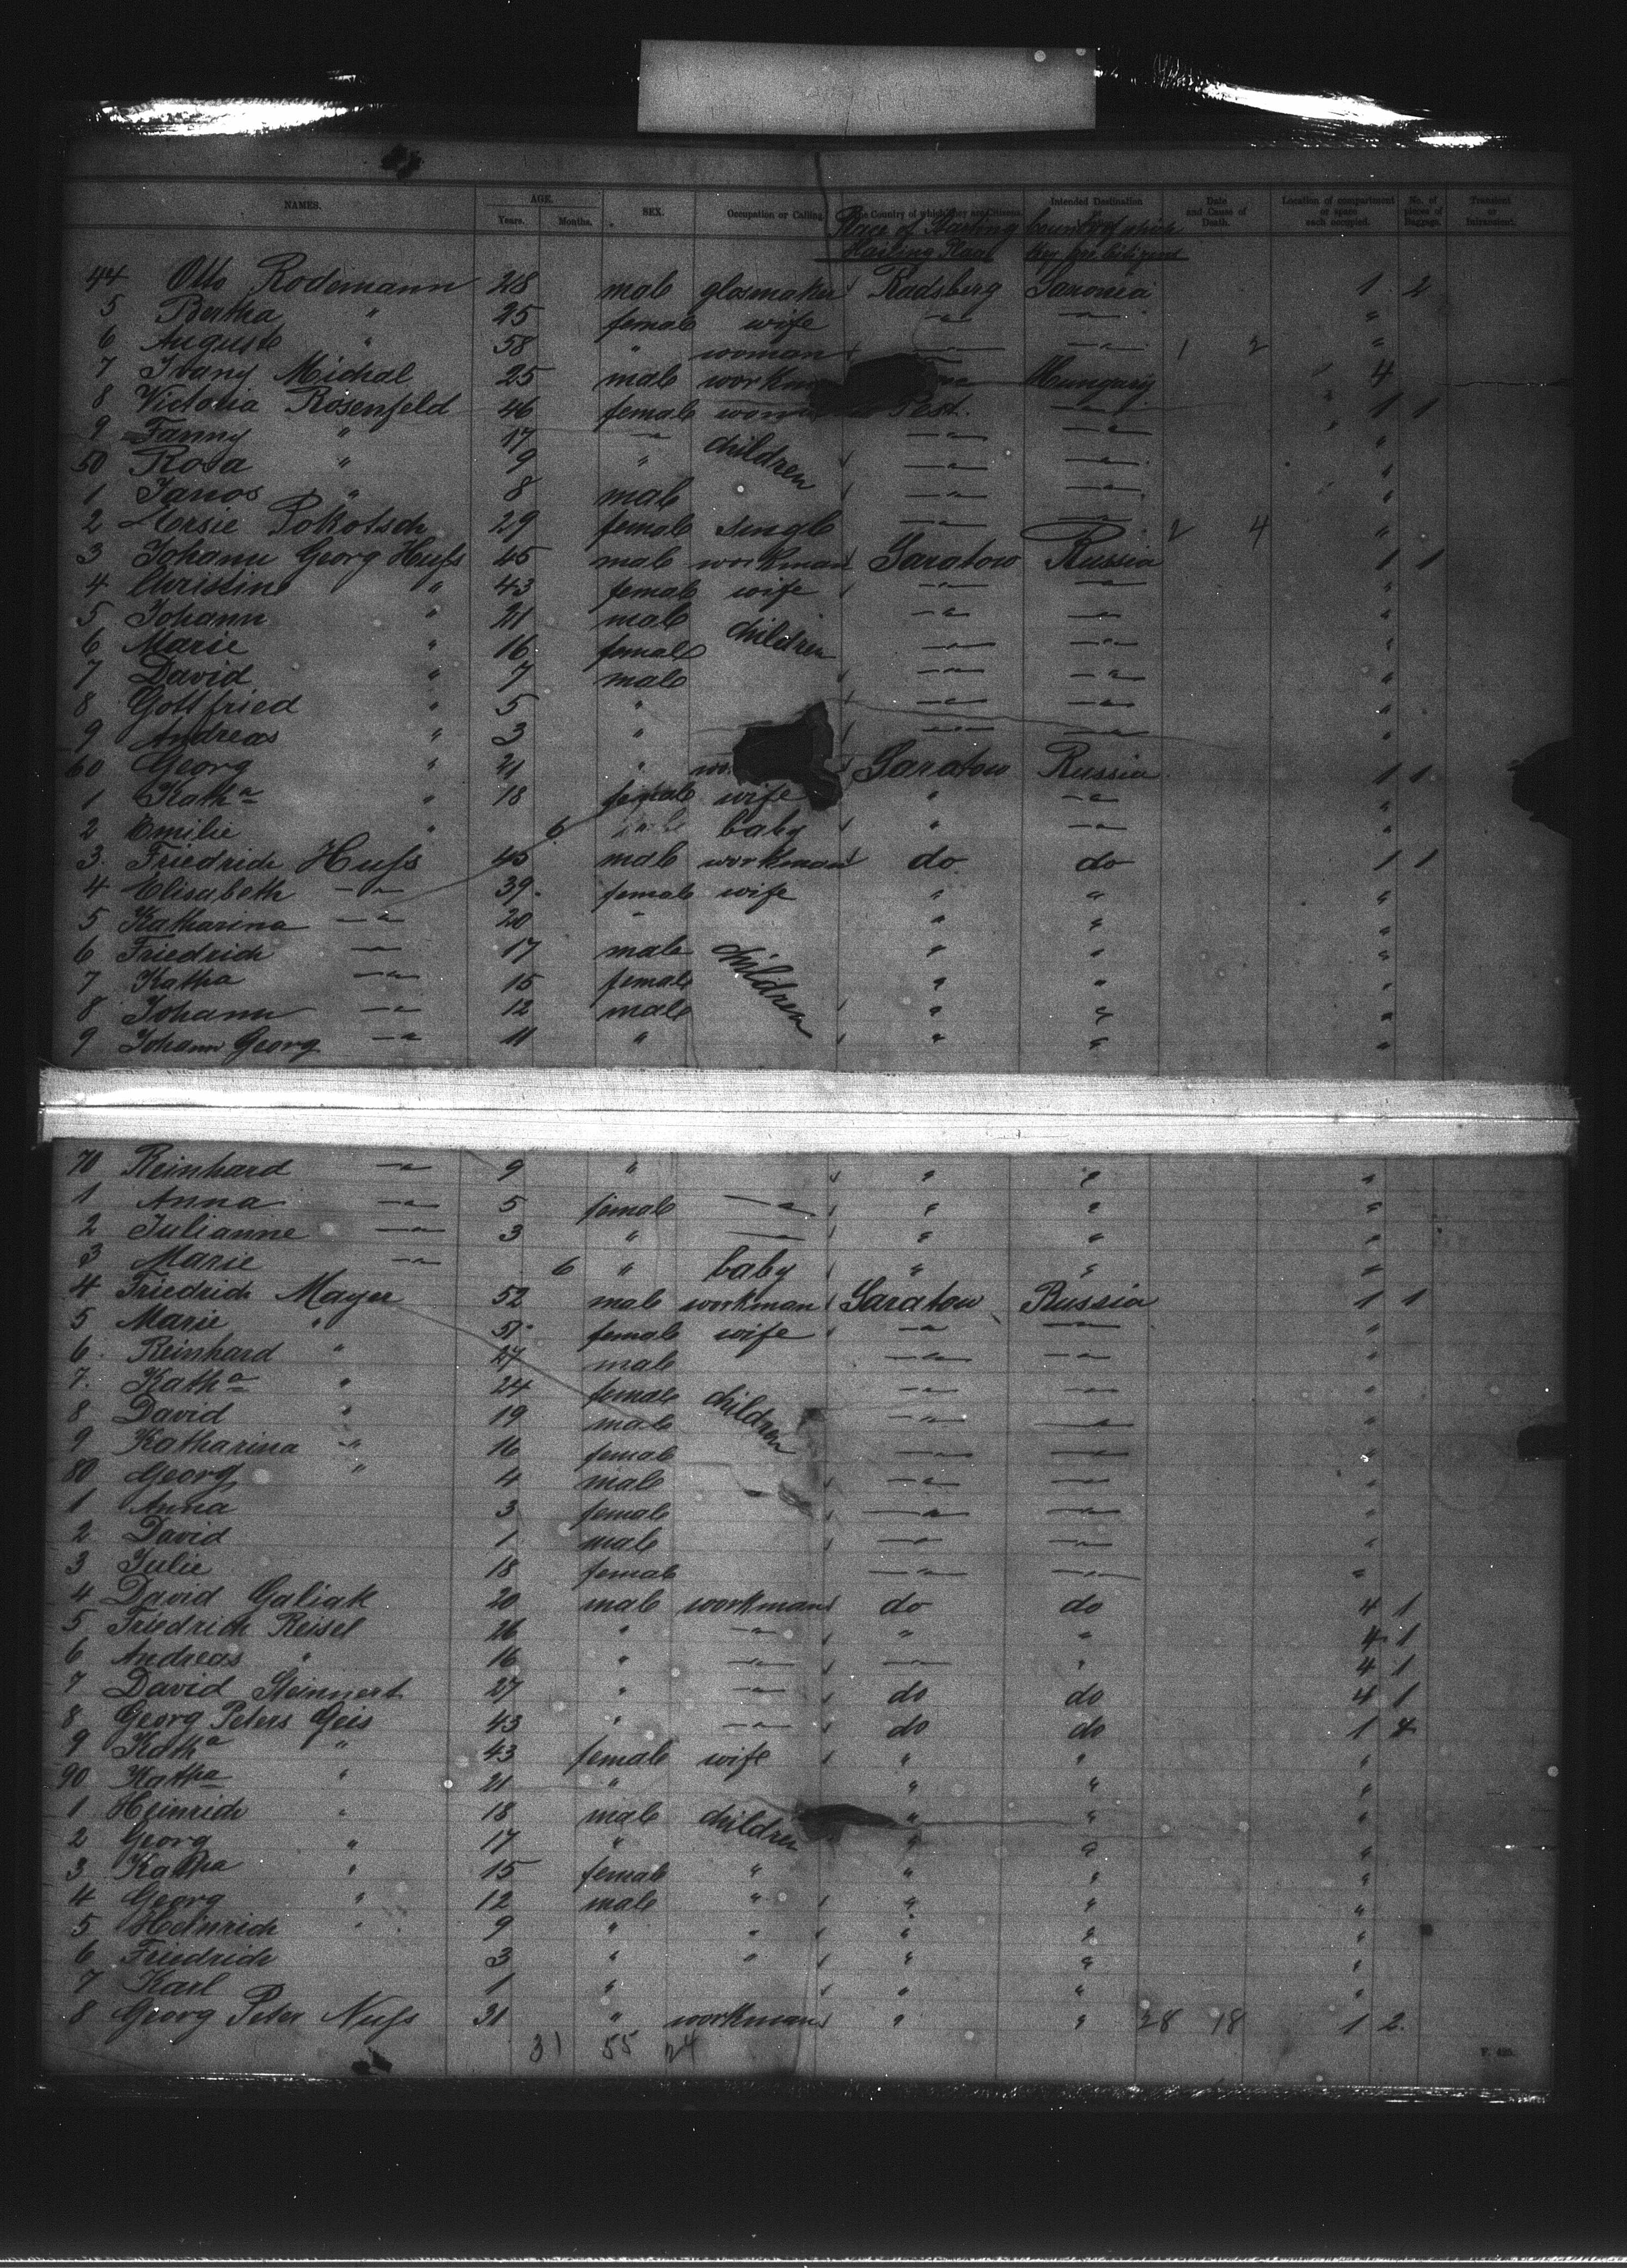 NAMES. AGE. Years. Months. SEX. Occupation or Calling. The Country of which they are Citizens. Intended Destination Date and Cause of Death. Location of compartment or space each occupied. No. of pieces of Baggage. Transient or Intransient.
Place of Starting Country of which
Hailing Place they are Citizens
44 Otto Rodemann 28 male glasmaker Radsberg Saxonia 1 2
5 Bertha " 25 female wife —"— —"— "
6 Auguste " 58 " woman —"— —"— 1 2 "
7 Ivany Michal 25 male Hungary 4
8 Victoria Rosenfeld 46 female Pest. —"— 1 1
9 Fanny " 17 —"— children —"— —"— "
50 Rosa " 9 " —"— —"— "
1 Janos " 8 male —"— —"— "
2 Pokotsch 29 female single —"— —"— 2 4 "
3 Johann Georg Huſs 45 male workman Saratow Russia 1 1
4 Christine " 43 female wife —"— —"— "
5 Johann " 21 male —"— —"— "
6 Marie " 16 female children —"— —"— "
7 David " 7 male —"— —"— "
8 Gottfried " 5 " —"— —"— "
9 Andreas " 3 " —"— —"— "
60 Georg " 21 " Saratow Russia 1 1
1 Katha " 18 female wife " —"— "
2 Emilie " 6 " baby " —"— "
3. Friedrich Huſs 45 male workman do do 1 1
4 Elisabeth —"— 39. female wife " " "
5 Katharina —"— 20 " " " "
6 Friedrich —"— 17 male children " " "
7 Katha —"— 15 female " " "
8 Johann —"— 12 male " " "
9 Johann Georg —"— 11 " " " "
70 Reinhard —"— 9 " " " "
1 Anna —"— 5 female —"— " " "
2 Julianne —"— 3 " —"— " " "
3 Marie —"— 6 " baby " " "
4 Friedrich Mayer 52 male workman Saratow Russia 1 1
5 Marie " 51 female wife —"— —"— "
6. Reinhard " 27 male —"— —"— "
7. Katha " 24 female children —"— —"— "
8 David " 19 male —"— —"— "
9 Katharina " 16 female —"— —"— "
80 Georg " 4 male —"— —"— "
1 Anna 3 female —"— —"— "
2 David 1 male —"— —"— "
3 Julie 18 female —"— —"— "
4 David Galiak 20 male workman do do 4 1
5 Friedrich Reisel 26 " —"— " " 4 1
6 Andreas " 16 " —"— —"— " 4 1
7 David Steinnert 27 " —"— do do 4 1
8 Georg Peters Geis 43 " —"— do do 1 4
9 Katha " 43 female wife " " "
90 Katha " 21 " " " "
1 Heinrich " 18 male children " " "
2 Georg " 17 " " " "
3 Katha " 15 female " " " "
4 Georg " 12 male " " " "
5 Heinrich " 9 " " " " "
6 Friedrich 3 " " " " "
7 Karl 1 " " " "
8 Georg Peter Nuſs 31 " workman " " 28 18 1 2.
31 55 24